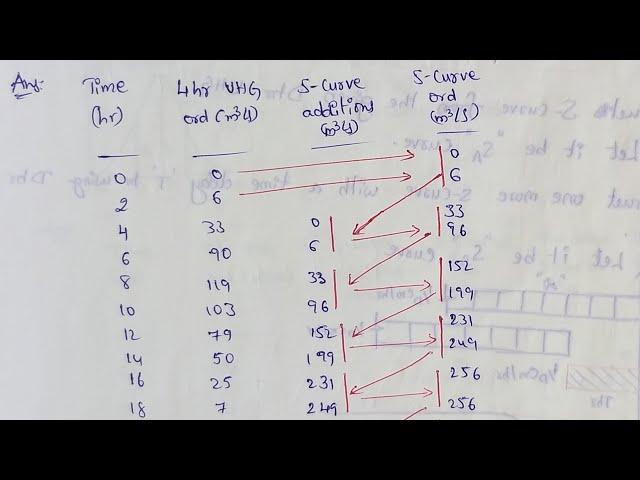 Ans: Time 4hr UHG S-Curve S-Curve
(hr) ord (m³/s) additions ord
(m³/s) (m³/s)
0 0 0
2 6 6
4 33 0 33
6 90 6 96
8 119 33 152
10 103 96 199
12 79 152 231
14 50 199 249
16 25 231 256
18 7 249 256